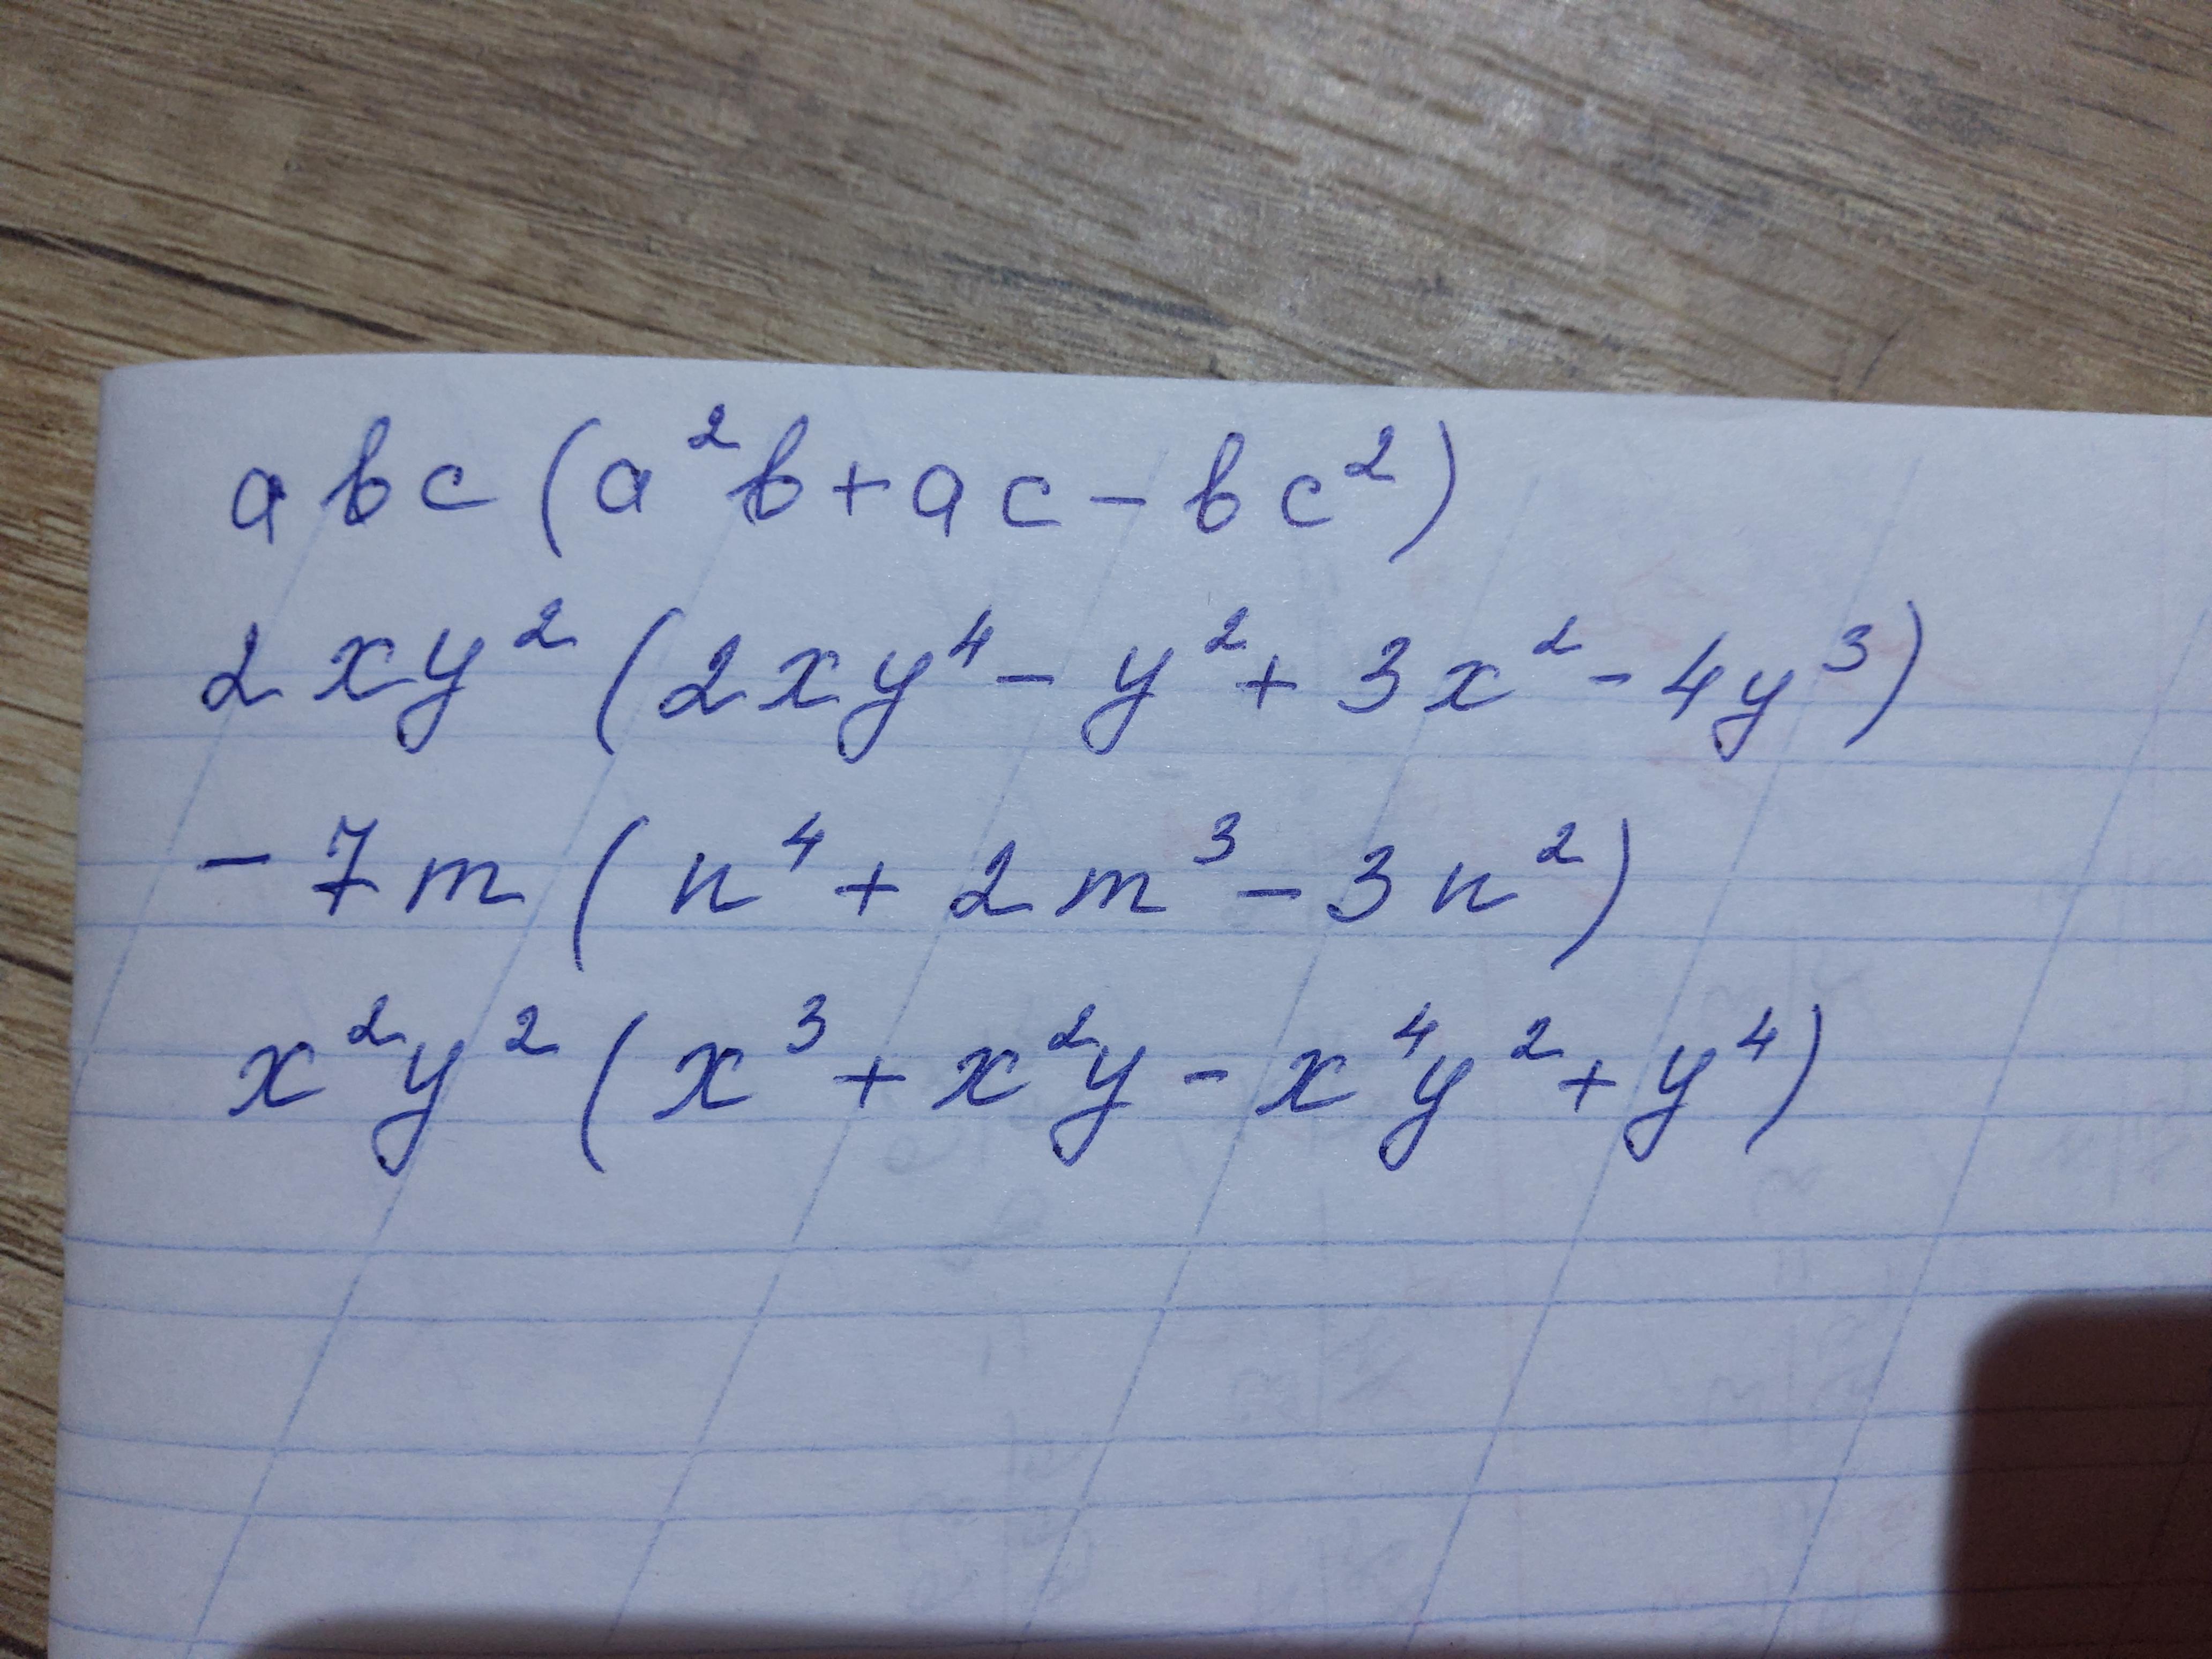 abc(a²b+ac-bc²)
2xy²(2xy⁴-y²+3x²-4y³)
-7m(n⁴+2m³-3n²)
x²y²(x³+x²y-x⁴y²+y⁴)